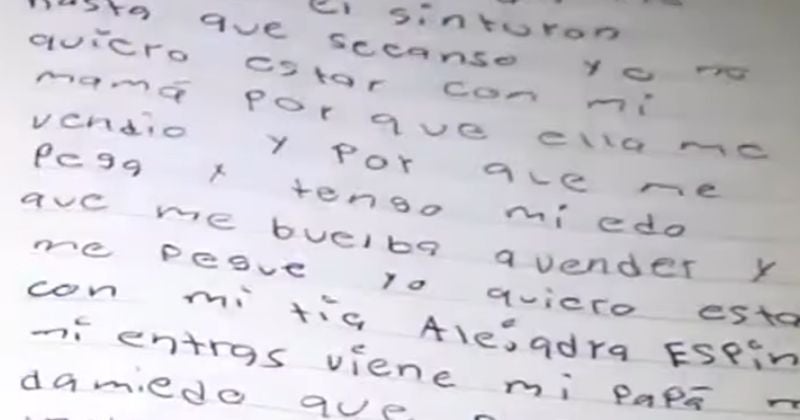 hasta que el sinturon
que secanso yo no
quiero estar con mi
mamá por que ella me
vendio y por que me
pega y tengo mi edo
que me buelba avender y
me pegue yo quiero esta
con mi tia Alejadra ESPin
mi entras viene mi papá
damiedo que